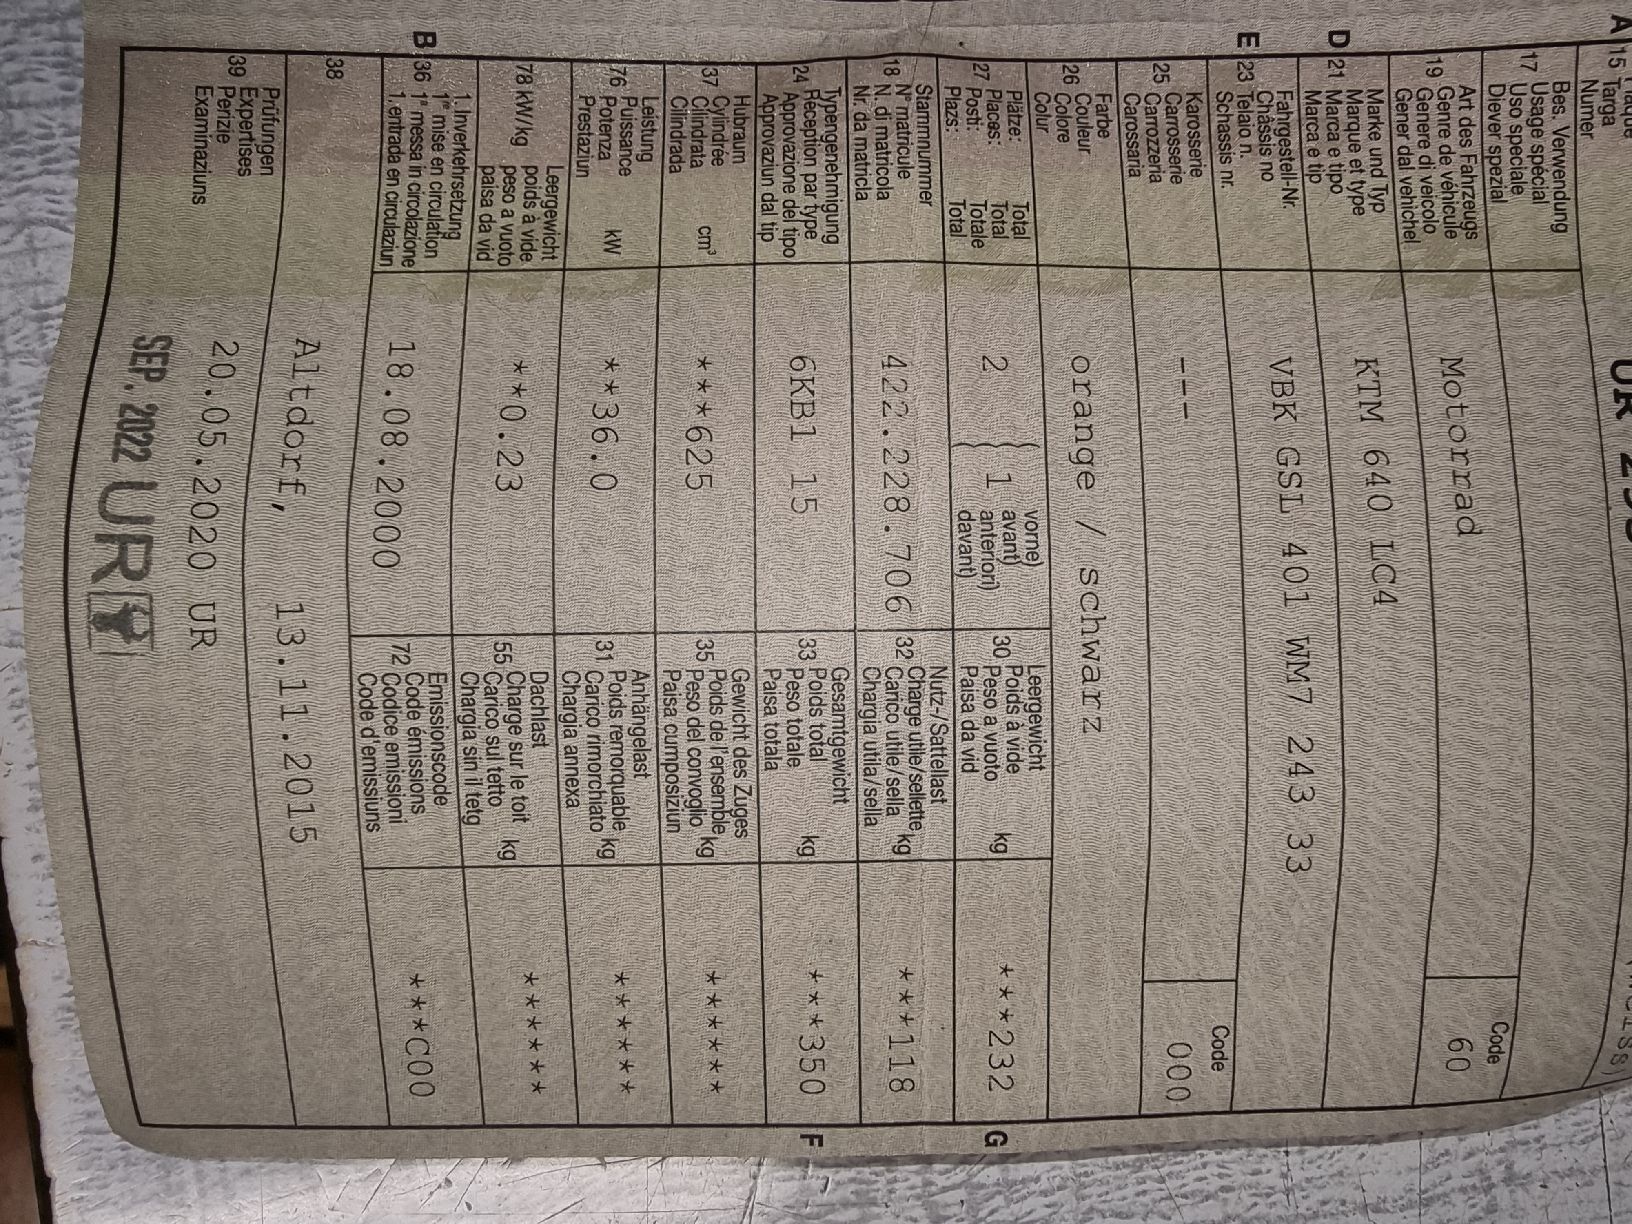 A 15 Targa
Numer
UR
Bes. Verwendung
Usage spécial
17 Uso speciale
Diever spezial
Art des Fahrzeugs
Genre de véhicule
19 Genere di veicolo
Gener dal vehichel
Motorrad
Code
60
Marke und Typ
Marque et type
D 21 Marca e tipo
Marca e tip
KTM 640 LC4
Fahrgestell-Nr.
Châssis no
E 23 Telaio n.
Schassis nr.
VBK GSL 401 WM7 243 33
Karosserie
Carrosserie
25 Carrozzeria
Carossaria
---
Code
000
Farbe
Couleur
26 Colore
Colur
orange / schwarz
Plätze: Total
Places: Total
27 Posti: Totale
Plazs: Total
2 { 1 vorne)
avant)
anteriori)
davant)
Leergewicht
Poids à vide
30 Peso a vuoto kg
Paisa da vid
***232
G
Stammnummer
N° matricule
18 N. di matricola
Nr. da matricla
422.228.706
Nutz-/Sattellast
Charge utile/sellette
32 Carico utile/sella kg
Chargia utila/sella
***118
Typengenehmigung
Réception par type
24 Approvazione del tipo
Approvaziun dal tip
6KB1 15
Gesamtgewicht
Poids total
33 Peso totale kg
Paisa totala
***350
F
Hubraum
Cylindrée
37 Cilindrata cm³
Cilindrada
***625
Gewicht des Zuges
Poids de l'ensemble
35 Peso del convoglio kg
Paisa cumposiziun
******
Leistung
Puissance
76 Potenza kW
Prestaziun
**36.0
Anhängelast
Poids remorquable
31 Carico rimorchiato kg
Chargia annexa
******
Leergewicht
poids à vide
78 kW/kg peso a vuoto
paisa da vid
**0.23
Dachlast
Charge sur le toit
55 Carico sul tetto kg
Chargia sin il tetg
******
1. Inverkehrsetzung
1re mise en circulation
B 36 1a messa in circolazione
1. entrada en circulaziun
18.08.2000
Emissionscode
Code émissions
72 Codice emissioni
Code d'emissiuns
***C00
38
Altdorf, 13.11.2015
Prüfungen
Expertises
39 Perizie
Examinaziuns
20.05.2020 UR
SEP. 2022 UR